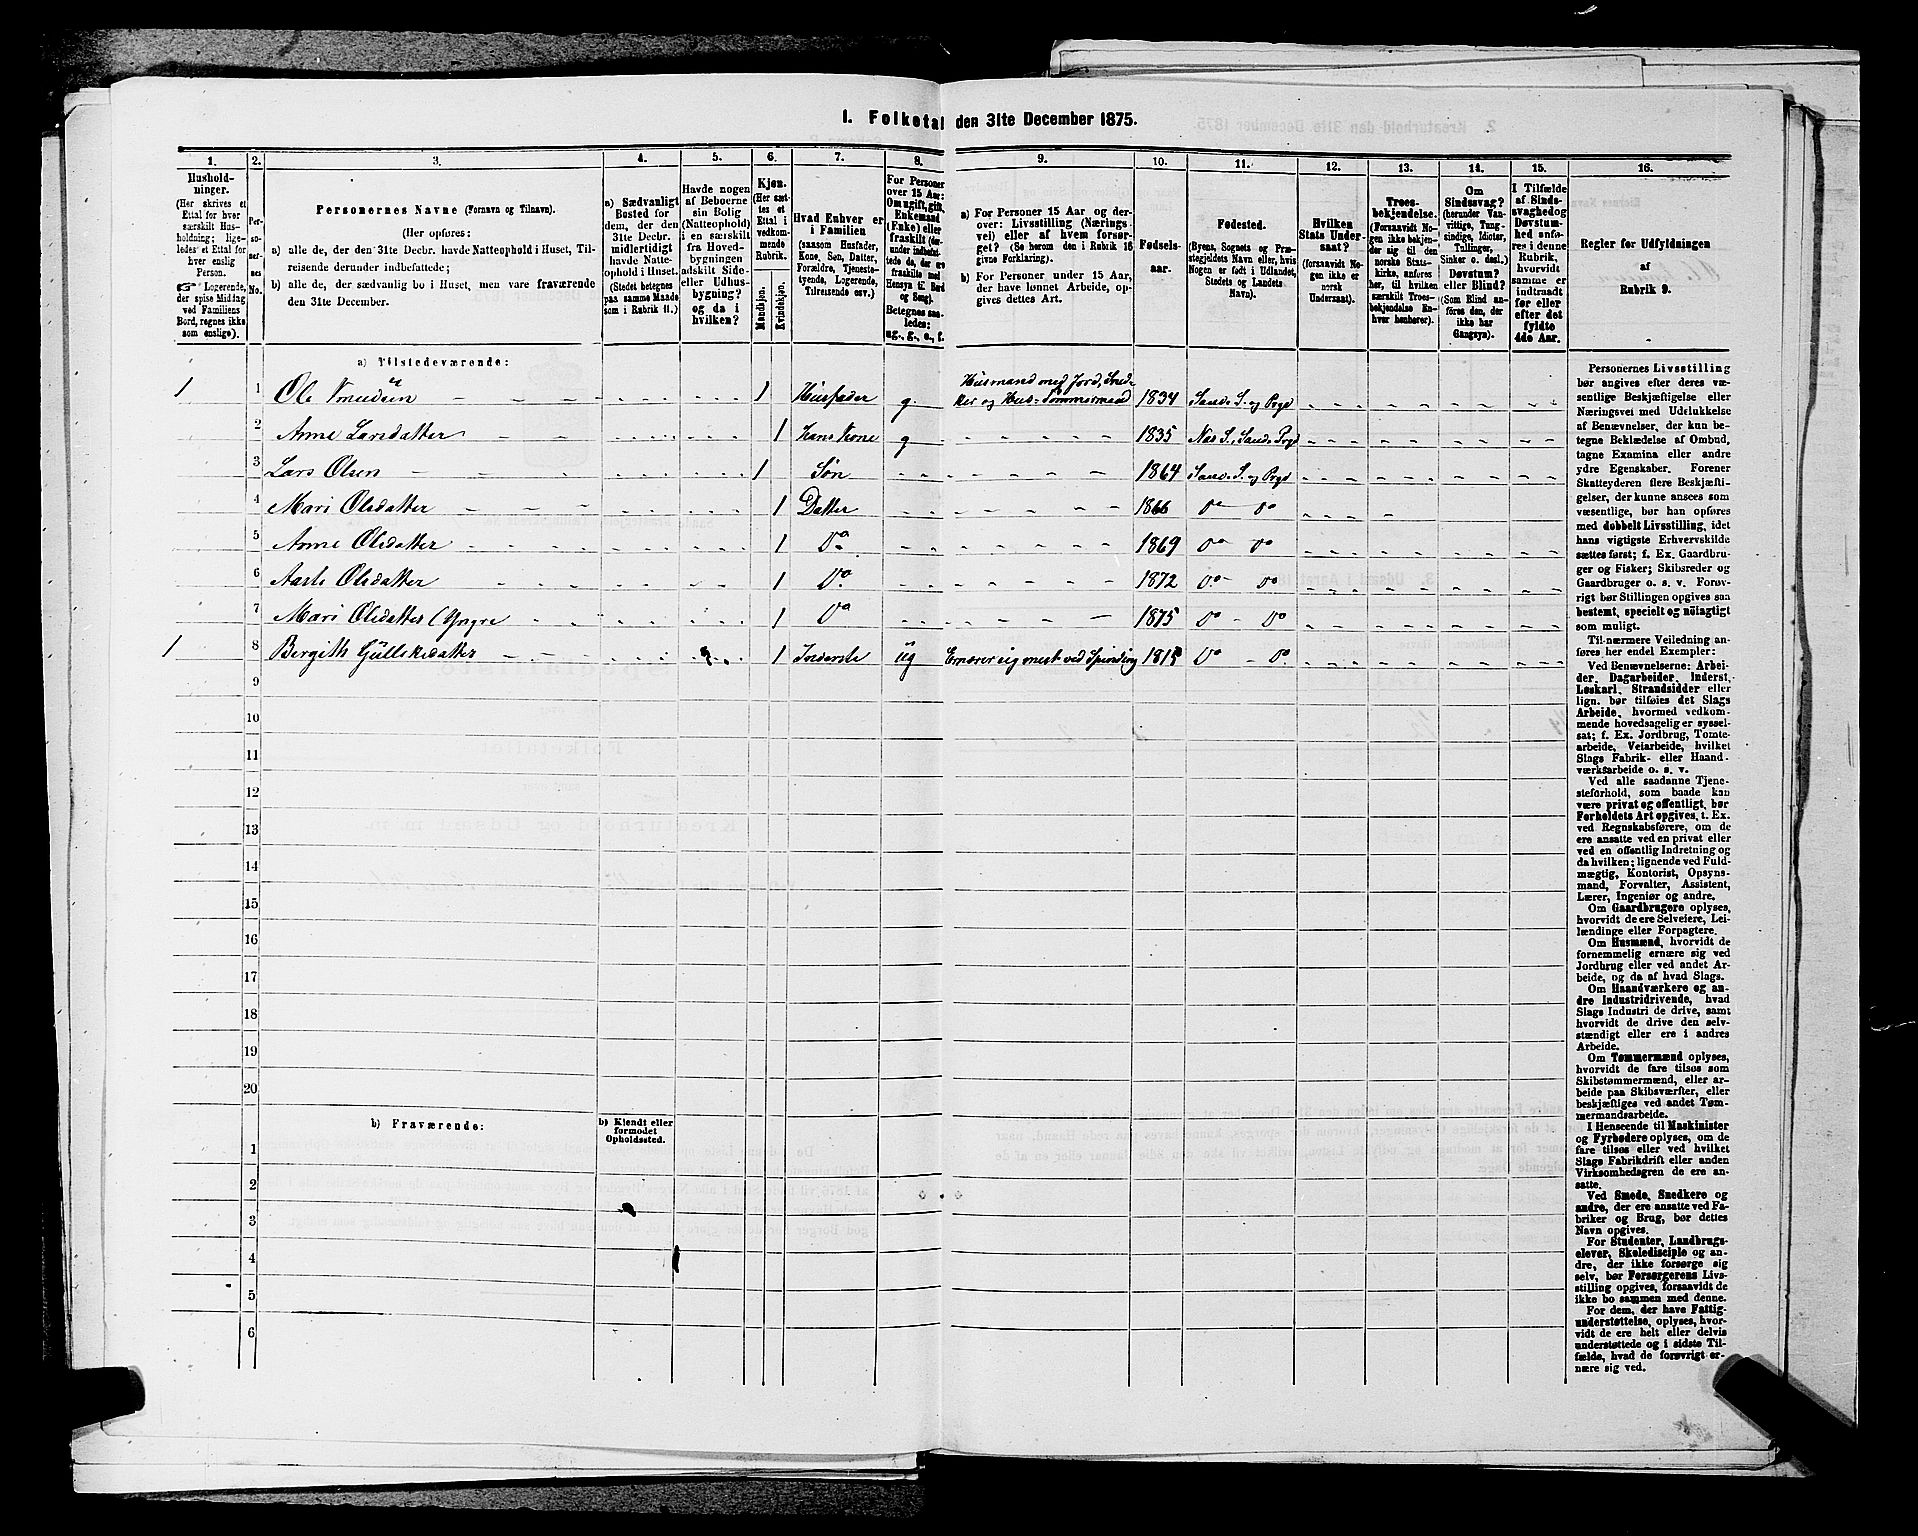 1. Folketal den 31te December 1875.
1. 2. 3. 4. 5. 6. 7. 8. 9. 10. 11. 12. 13. 14. 15. 16.
Hushold-
ninger.
(Her skrives et
Ettal for hver
særskilt Hus-
holdning; lige-
ledes et Ettal for
hver enslig
Person.
☞ Logerende,
der spise Middag
ved Familiens
Bord, regnes ikke
som enslige).
Per-
so-
ner-
nes
No.
Personernes Navne (Fornavn og Tilnavn).
(Her opføres:
a) alle de, der den 31te Decbr. havde Natteophold i Huset, Til-
reisende derunder indbefattede;
b) alle de, der sædvanlig bo i Huset, men vare fraværende
den 31te December.
a) Sædvanligt
Bosted for
dem, der den
31te Decbr.
midlertidigt
havde Natte-
ophold i Huset.
(Stedet betegnes
paa samme Maade
som i Rubrik 11.)
Havde nogen
af Beboerne
sin Bolig
(Natteophold)
i en særskilt
fra Hoved-
bygningen
adskilt Side-
eller Udhus-
bygning?
og da i
hvilken?
Kjøn.
(Her sæt-
tes et
Ettal i
vedkom-
mende
Rubrik.
Mandkjøn.
Kvindekjøn.
Hvad Enhver er
i Familien
(saasom Husfader,
Kone, Søn, Datter,
Forældre, Tjeneste-
tyende, Logerende,
Tilreisende osv.)
For Personer
over 15 Aar:
Om ugift, gift,
Enkemand
(Enke) eller
fraskilt (der-
under indbefat-
tede de, der ere
fraskilte med
Hensyn til Bord
og Seng).
Betegnes saa-
ledes:
ug., g., e., f.
a) For Personer 15 Aar og der-
over: Livsstilling (Nærings-
vei) eller af hvem forsør-
get? (Se herom den i Rubrik 16
givne Forklaring).
b) For Personer under 15 Aar,
der have lønnet Arbeide, op-
gives dettes Art.
Fødsels-
aar.
Fødested.
(Byens, Sognets og Præ-
stegjeldets Navn eller, hvis
Nogen er født i Udlandet,
Stedets og Landets
Navn).
Hvilken
Stats Under-
saat?
(forsaavidt No-
gen ikke er
norsk
Undersaat).
Troes-
bekjendelse.
(Forsaavidt No-
gen ikke bekjen-
der sig til den
norske Stats-
kirke, anføres
her, til hvilken
særskilt Troes-
bekjendelse En-
hver henhører).
Om
Sindssvag?
(herunder Van-
vittige, Tung-
sindige, Idioter,
Tullinger,
Sinker o. desl.)
Døvstum?
eller Blind?
(Som Blind an-
føres den, der
ikke har
Gangsyn).
I Tilfælde
af Sinds-
svaghed og
Døvstum-
hed anfø-
res i denne
Rubrik,
hvorvidt
samme er
indtraadt
før eller
efter det
fyldte
4de Aar.
Regler for Udfyldningen
af
Rubrik 9.
a) Tilstedeværende:
1 1 Ole Knudsen 1 Husfader g. Husmand med Jord, Sned-
ker og Hus-Tømmermand 1834 Sande S. og Prgd
2 Anne Larsdatter 1 Hans Kone g 1835 Næs S., Sande Prgd
3 Lars Olsen 1 Søn 1864 Sande S. og Prgd
4 Mari Olsdatter 1 Datter 1866 Do Do
5 Anne Olsdatter 1 Do 1869 Do Do
6 Aaste Olsdatter 1 Do 1872 Do Do
7 Mari Olsdatter (Yngre 1 Do 1875 Do Do
1 8 Bergith Gullsikdatter 1 Inderste ug Ernærer sig mest ved Spinding 1815 Do Do
9
10
11
12
13
14
15
16
17
18
19
20
b) Fraværende:
b) Kjendt eller
formodet
Opholdssted.
1
2
3
4
5
6
Personernes Livsstilling
bør angives efter deres væ-
sentlige Beskjæftigelse eller
Næringsvei med Udelukkelse
af Benævnelser, der kun be-
tegne Beklædelse af Ombud,
tagne Examina eller andre
ydre Egenskaber. Forener
Skatteyderen flere Beskjæfti-
gelser, der kunne ansees som
væsentlige, bør han opføres
med dobbelt Livsstilling, idet
hans vigtigste Erhvervskilde
sættes først; f. Ex. Gaardbru-
ger og Fisker; Skibsreder og
Gaardbruger o. s. v. Forøv-
rigt bør Stillingen opgives saa
bestemt, specielt og nøiagtigt
som muligt.
Til nærmere Veiledning an-
føres her endel Exempler:
Ved Benævnelserne: Arbei-
der, Dagarbeider, Inderst,
Løskarl, Strandsidder eller
lign. bør tilføies det Slags
Arbeide, hvormed vedkom-
mende hovedsagelig er syssel-
sat; f. Ex. Jordbrug, Tomte-
arbeide, Veiarbeide, hvilket
Slags Fabrik- eller Haand-
værksarbeide o. s. v.
Ved alle saadanne Tjene-
steforhold, som baade kan
være privat og offentligt, bør
Forholdets Art opgives, f. Ex.
ved Regnskabsførere, om de
ere ansatte ved en privat eller
ved en offentlig Indretning og
da hvilken; lignende ved Fuld-
mægtig, Kontorist, Opsyns-
mand, Forvalter, Assistent,
Lærer, Ingeniør og andre.
Om Gaardbrugere oplyses,
hvorvidt de ere Selveiere, Lei-
lændinge eller Forpagtere.
Om Husmænd, hvorvidt de
fornemmelig ernære sig ved
Jordbrug eller ved andet Ar-
beide, og da af hvad Slags.
Om Haandværkere og an-
dre Industridrivende, hvad
Slags Industri de drive, samt
hvorvidt de drive den selv-
stændigt eller ere i andres
Arbeide.
Om Tømmermænd oplyses,
hvorvidt de fare tilsøs som
Skibstømmermænd, eller ar-
beide paa Skibsværfter, eller
beskjæftiges ved andet Tøm-
mermandsarbeide.
I Henseende til Maskinister
og Fyrbødere oplyses, om de
fare tilsøs eller ved hvilket
Slags Fabrikdrift eller anden
Virksomhedsgren de ere an-
satte.
Ved Smede, Snedkere og
andre, der ere ansatte ved Fa-
briker og Brug, bør dettes
Navn opgives.
For Studenter, Landbrugs-
elever, Skoledisciple og an-
dre, der ikke forsørge sig
selv, bør Forsørgerens Livs-
stilling opgives, forsaavidt de
ikke bo sammen med denne.
For dem, der have Fattig-
understøttelse, oplyses, hvor-
vidt de ere helt eller delvis
understøttede og i sidste Til-
fælde, hvad de forøvrigt er-
nære sig ved.